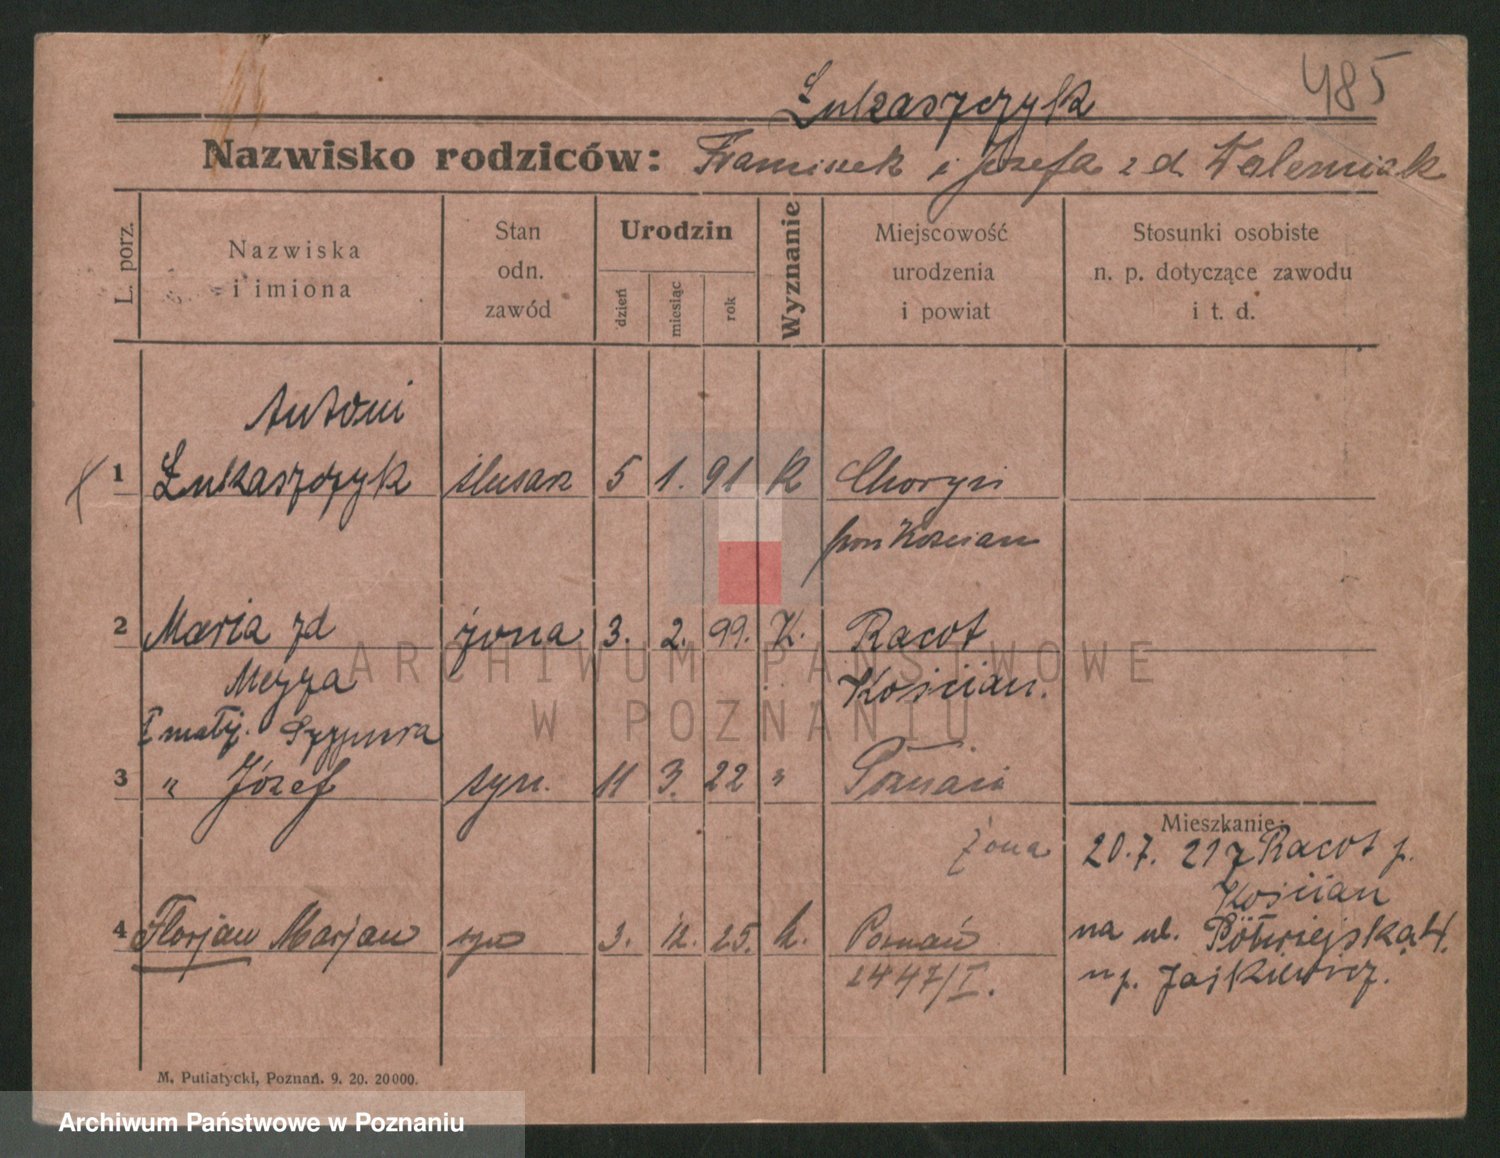 485
Łukaszczyk
Nazwisko rodziców: Franciszek i Józefa z d. Waleniak
L. porz.
Nazwiska i imiona
Stan odn. zawód
Urodzin
dzień
miesiąc
rok
Wyznanie
Miejscowość urodzenia i powiat
Stosunki osobiste n. p. dotyczące zawodu i t. d.
Antoni
1 Łukaszczyk ślusarz 5 1. 91 K Choryń
pow Kościan
2 Maria zd żona 3. 2. 99. K. Racot
Mezza Kościan.
I małż. Szypura
3 " Józef syn. 11 3. 22 " Poznań
Mieszkanie:
żona 20.7. 21 z Racot p.
Kościan
4 Florjan Marjan syn 3. 12. 25. k. Poznań na ul. Półwiejską 4.
2447/I. u p. Jaśkiewicz.
M. Putiatycki, Poznań. 9. 20. 20000.
ARCHIWUM PAŃSTWOWE
W POZNANIU
Archiwum Państwowe w Poznaniu